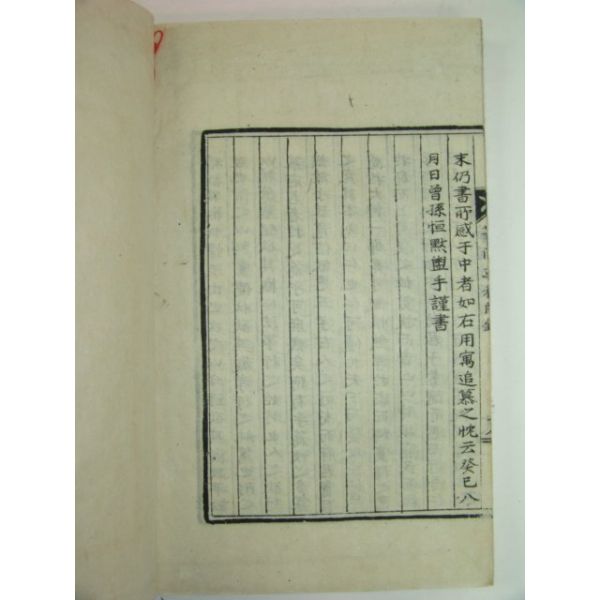 末仍書所感于中者如右用寓追慕之忱云癸巳八
月日曾孫恒黙盥手謹書